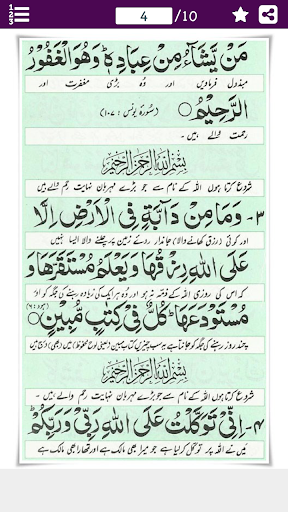 4 /10
مَنْ يَّشَآءُ مِنْ عِبَادِهٖ ؕ وَهُوَ الْغَفُوْرُ
مبذول فرماویں اور وُہ بڑی مغفرت اور
الرَّحِيْمُ ○ (سُورَة يونس : ١٠٧)
رحمت والے ہیں ۔
بِسْمِ اللهِ الرَّحْمٰنِ الرَّحِيْمِ
شروع کرتا ہوں اللہ کے نام سے جو بڑے مہربان نہایت رحم والے ہیں ۔
٣- وَمَا مِنْ دَآبَّةٍ فِى الْاَرْضِ اِلَّا
اور کوئی (رزق کھانے والا) جاندار روئے زمین پر چلنے والا ایسا نہیں
عَلَى اللهِ رِزْقُهَا وَيَعْلَمُ مُسْتَقَرَّهَا وَ
کہ اس کی روزی اللہ کے ذمہ نہ ہو اور وُہ ہر ایک کی زیادہ رہنے کی جگہ کو اور
مُسْتَوْدَعَهَا ؕ كُلٌّ فِىْ كِتٰبٍ مُّبِيْنٍ ○ (ہود : ٦)
چند روز رہنے کی جگہ کو جانتا ہے سب چیزیں کتاب مبین (یعنی لوح محفوظ) میں
بِسْمِ اللهِ الرَّحْمٰنِ الرَّحِيْمِ
شروع کرتا ہوں اللہ کے نام سے جو بڑے مہربان نہایت رحم والے ہیں ۔
٤- اِنِّىْ تَوَكَّلْتُ عَلَى اللهِ رَبِّىْ وَرَبِّكُمْ ؕ
میں نے اللہ پر توکل کرلیا ہے جو میرا بھی مالک ہے اور تمھارا بھی مالک ہے